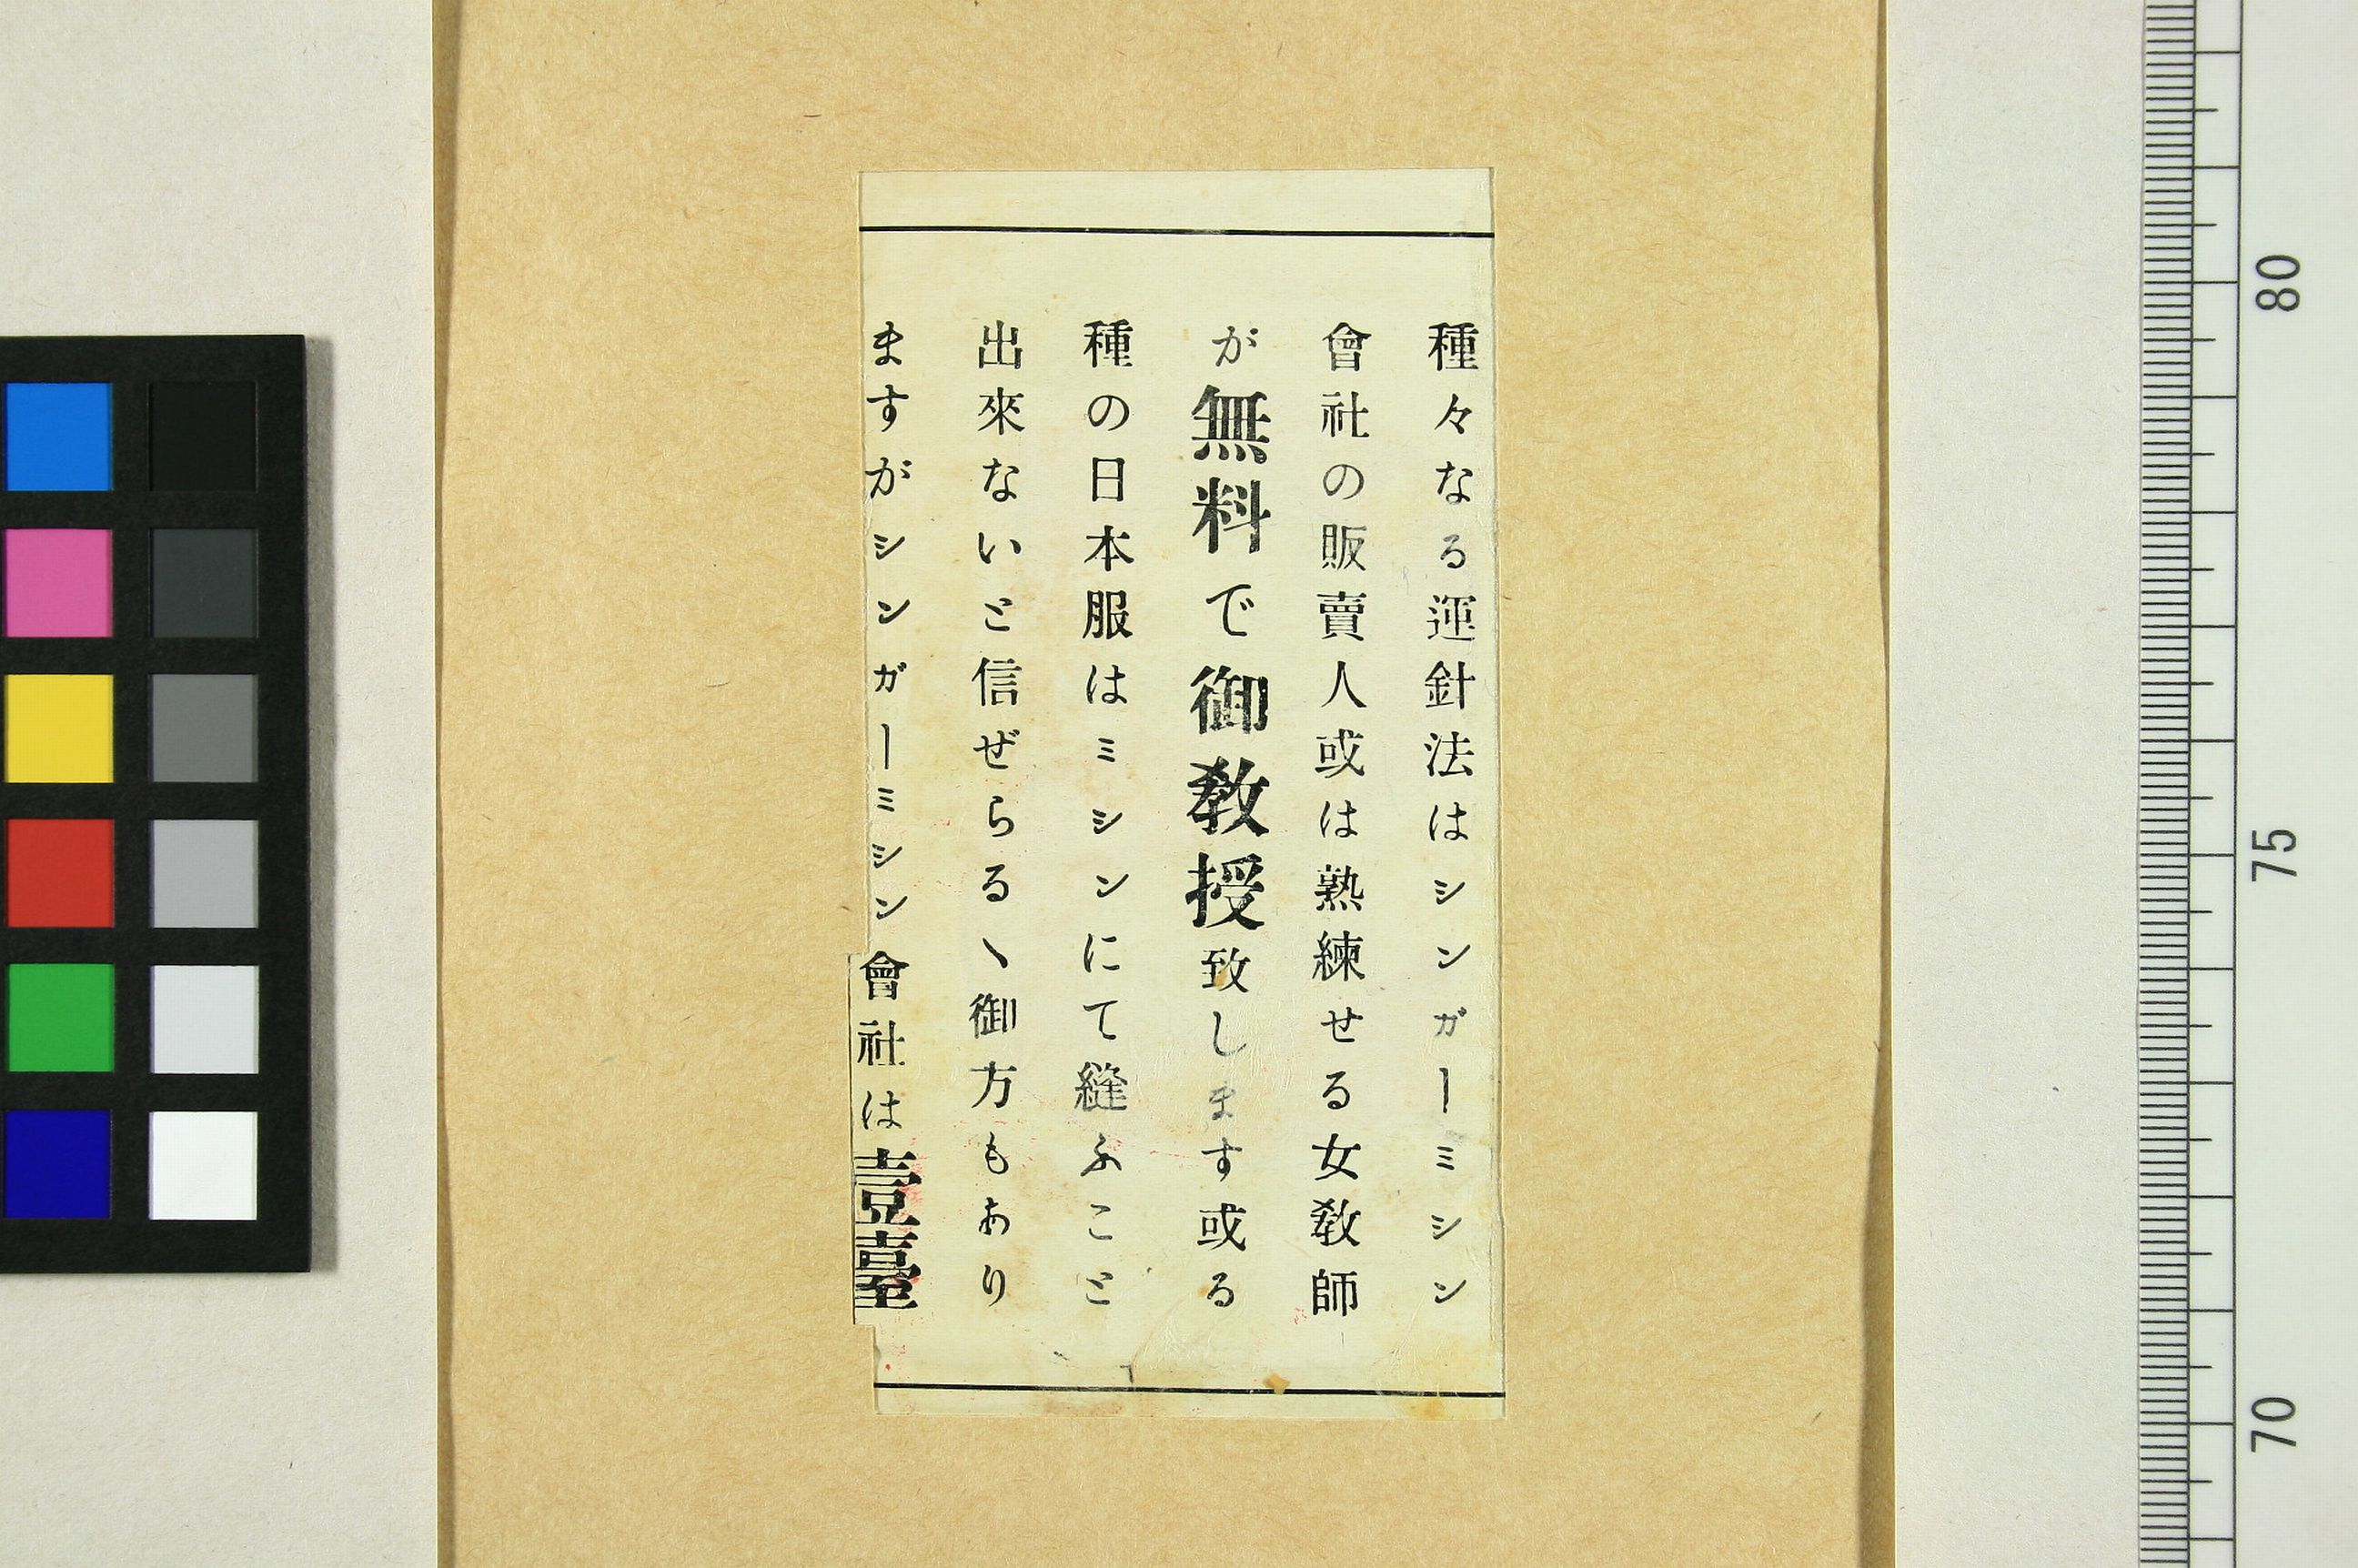 種々なる運針法はシンガーミシン
會社の販賣人或は熟練せる女敎師
が無料で御敎授致します或る
種の日本服はミシンにて縫ふこと
出來ないと信ぜらるゝ御方もあり
ますがシンガーミシン會社は壹臺
80
75
70